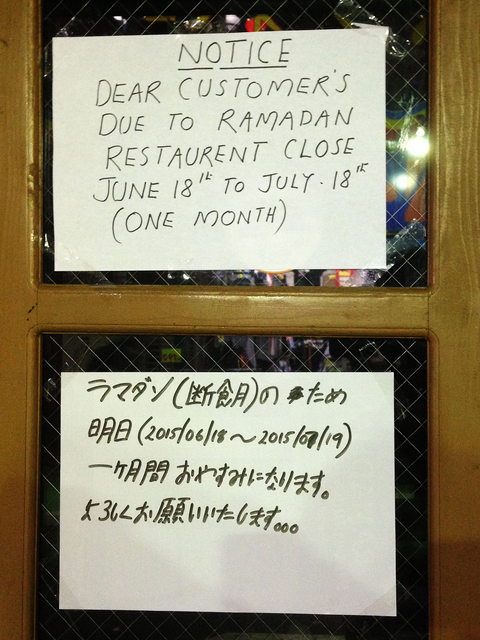 NOTICE
DEAR CUSTOMER'S
DUE TO RAMADAN
RESTAURENT CLOSE
JUNE 18th TO JULY. 18th
(ONE MONTH)
ラマダン(断飴月)の ため
明日(2015/06/18〜2015/07/19)
一ヶ月間 おやすみになります。
よろしくお願いいたします。。。